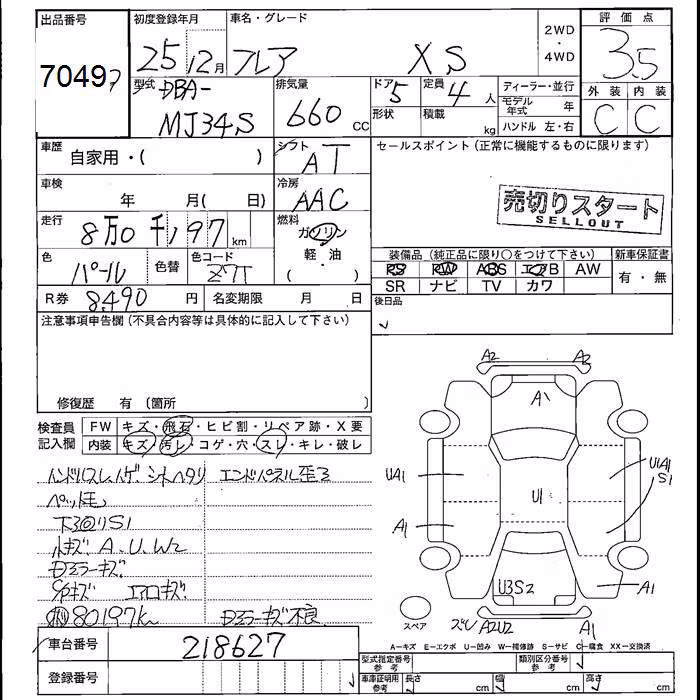 出品番号
70497
初度登録年月
25 12月
車名・グレード
フレア XS
2WD
・
4WD
評価点
3.5
型式
DBA-
MJ34S
排気量
660 CC
ドア 5
定員 4 人
形状
積載 kg
ディーラー・並行
モデル年式 年
ハンドル 左・右
外装 内装
C C
車歴
自家用・( )
シフト
AT
セールスポイント(正常に機能するものに限ります)
車検
年 月( 日)
冷房
AAC
売切りスタート
SELLOUT
走行
8万0千197 km
燃料
ガソリン
軽・油
( )
色
パール
色替
色コード
Z7T
装備品(純正品に限り○をつけて下さい)
新車保証書
PS PW ABS エアB AW
有・無
SR ナビ TV カワ
R券 8490 円
名変期限 月 日
後日品
注意事項申告欄(不具合内容等は具体的に記入して下さい)
修復歴 有〔箇所 〕
検査員
記入欄
FW キズ・飛石・ヒビ割・リペア跡・X要
内装 キズ・汚レ・コゲ・穴・スレ・キレ・破レ
ハンドルスレハゲ シートヘタリ
エンドパネル歪ミ
ペット毛
下廻りS1
ルーキズ A.U.W2
エアロキズ
80197km
ミラーキズ不良
A2 A2
A1
UA1
U1
U1A1
S1
A1
U3S2
A1
スペア
ズレ A2U2
A1
車台番号 218627
登録番号
A=キズ E=エクボ U=凹み W=補修跡 S=サビ C=腐食 XX=交換済
型式指定番号
参考
類別区分番号
参考
車庫証明用
参考
長さ cm
幅 cm
高さ cm